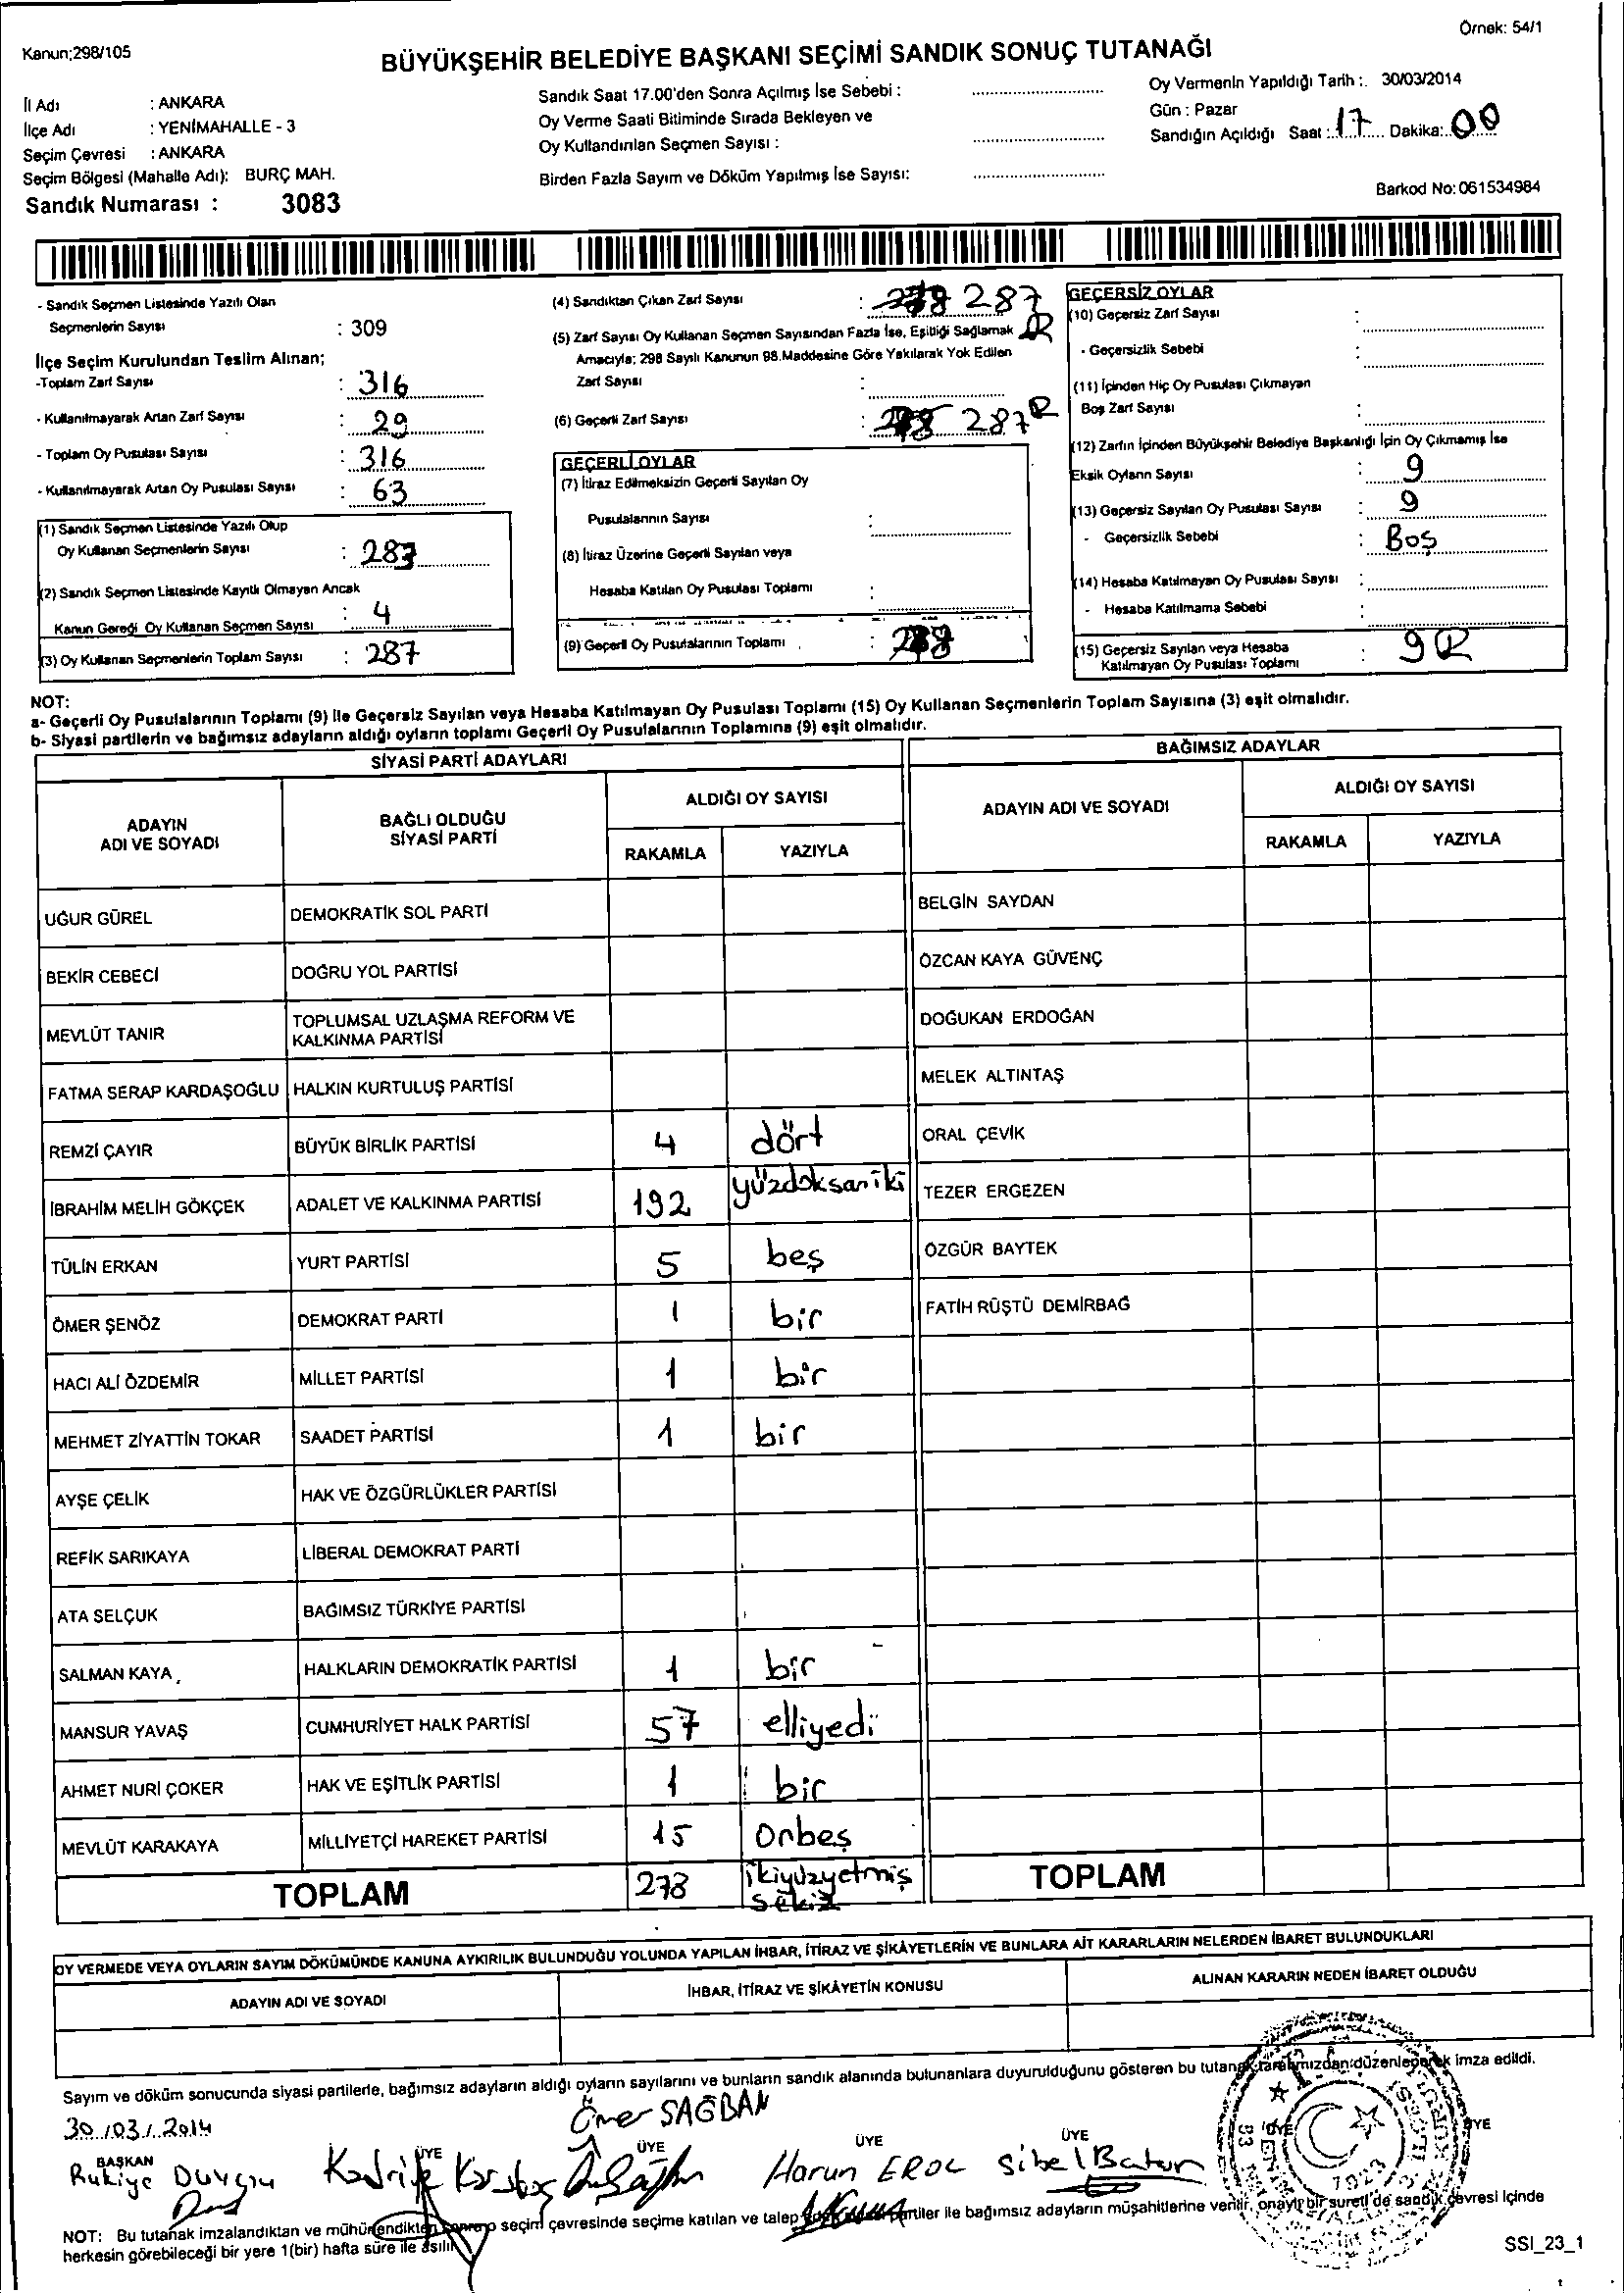 Örnek: 54/1
Kanun;298/105
BÜYÜKŞEHİR BELEDİYE BAŞKANI SEÇİMİ SANDIK SONUÇ TUTANAĞI
İl Adı : ANKARA
İlçe Adı : YENİMAHALLE - 3
Seçim Çevresi : ANKARA
Seçim Bölgesi (Mahalle Adı): BURÇ MAH.
Sandık Numarası : 3083
Sandık Saat 17.00'den Sonra Açılmış İse Sebebi :
Oy Verme Saati Bitiminde Sırada Bekleyen ve
Oy Kullandırılan Seçmen Sayısı :
Birden Fazla Sayım ve Döküm Yapılmış İse Sayısı:
Oy Vermenin Yapıldığı Tarih :. 30/03/2014
Gün : Pazar
Sandığın Açıldığı Saat : 17 Dakika: 00
Barkod No: 061534984
- Sandık Seçmen Listesinde Yazılı Olan
Seçmenlerin Sayısı : 309
İlçe Seçim Kurulundan Teslim Alınan;
-Toplam Zarf Sayısı : 316
- Kullanılmayarak Artan Zarf Sayısı : 29
- Toplam Oy Pusulası Sayısı : 316
- Kullanılmayarak Artan Oy Pusulası Sayısı : 63
(1) Sandık Seçmen Listesinde Yazılı Olup
Oy Kullanan Seçmenlerin Sayısı : 283
(2) Sandık Seçmen Listesinde Kayıtlı Olmayan Ancak
Kanun Gereği Oy Kullanan Seçmen Sayısı : 4
(3) Oy Kullanan Seçmenlerin Toplam Sayısı : 287
(4) Sandıktan Çıkan Zarf Sayısı : 287
(5) Zarf Sayısı Oy Kullanan Seçmen Sayısından Fazla İse, Eşitliği Sağlamak
Amacıyla; 298 Sayılı Kanunun 98.Maddesine Göre Yakılarak Yok Edilen
Zarf Sayısı :
(6) Geçerli Zarf Sayısı : 287
GEÇERLİ OYLAR
(7) İtiraz Edilmeksizin Geçerli Sayılan Oy
Pusulalarının Sayısı :
(8) İtiraz Üzerine Geçerli Sayılan veya
Hesaba Katılan Oy Pusulası Toplamı :
(9) Geçerli Oy Pusulalarının Toplamı :
GEÇERSİZ OYLAR
(10) Geçersiz Zarf Sayısı :
- Geçersizlik Sebebi :
(11) İçinden Hiç Oy Pusulası Çıkmayan
Boş Zarf Sayısı :
(12) Zarfın İçinden Büyükşehir Belediye Başkanlığı İçin Oy Çıkmamış İse
Eksik Oyların Sayısı : 9
(13) Geçersiz Sayılan Oy Pusulası Sayısı : 9
- Geçersizlik Sebebi : Boş
(14) Hesaba Katılmayan Oy Pusulası Sayısı :
- Hesaba Katılmama Sebebi :
(15) Geçersiz Sayılan veya Hesaba
Katılmayan Oy Pusulası Toplamı : 9
NOT:
a- Geçerli Oy Pusulalarının Toplamı (9) ile Geçersiz Sayılan veya Hesaba Katılmayan Oy Pusulası Toplamı (15) Oy Kullanan Seçmenlerin Toplam Sayısına (3) eşit olmalıdır.
b- Siyasi partilerin ve bağımsız adayların aldığı oyların toplamı Geçerli Oy Pusulalarının Toplamına (9) eşit olmalıdır.
SİYASİ PARTİ ADAYLARI
BAĞIMSIZ ADAYLAR
ADAYIN
ADI VE SOYADI
BAĞLI OLDUĞU
SİYASİ PARTİ
ALDIĞI OY SAYISI
RAKAMLA YAZIYLA
ADAYIN ADI VE SOYADI
ALDIĞI OY SAYISI
RAKAMLA YAZIYLA
UĞUR GÜREL DEMOKRATİK SOL PARTİ BELGİN SAYDAN
BEKİR CEBECİ DOĞRU YOL PARTİSİ ÖZCAN KAYA GÜVENÇ
MEVLÜT TANIR TOPLUMSAL UZLAŞMA REFORM VE KALKINMA PARTİSİ DOĞUKAN ERDOĞAN
FATMA SERAP KARDAŞOĞLU HALKIN KURTULUŞ PARTİSİ MELEK ALTINTAŞ
REMZİ ÇAYIR BÜYÜK BİRLİK PARTİSİ 4 dört ORAL ÇEVİK
İBRAHİM MELİH GÖKÇEK ADALET VE KALKINMA PARTİSİ 192 yüzdoksaniki TEZER ERGEZEN
TÜLİN ERKAN YURT PARTİSİ 5 beş ÖZGÜR BAYTEK
ÖMER ŞENÖZ DEMOKRAT PARTİ 1 bir FATİH RÜŞTÜ DEMİRBAĞ
HACI ALİ ÖZDEMİR MİLLET PARTİSİ 1 bir
MEHMET ZİYATTİN TOKAR SAADET PARTİSİ 1 bir
AYŞE ÇELİK HAK VE ÖZGÜRLÜKLER PARTİSİ
REFİK SARIKAYA LİBERAL DEMOKRAT PARTİ
ATA SELÇUK BAĞIMSIZ TÜRKİYE PARTİSİ
SALMAN KAYA HALKLARIN DEMOKRATİK PARTİSİ 1 bir
MANSUR YAVAŞ CUMHURİYET HALK PARTİSİ 57 elliyedi
AHMET NURİ ÇOKER HAK VE EŞİTLİK PARTİSİ 1 bir
MEVLÜT KARAKAYA MİLLİYETÇİ HAREKET PARTİSİ 15 Onbeş
TOPLAM 278 ikiyüzyetmiş sekiz TOPLAM
OY VERMEDE VEYA OYLARIN SAYIM DÖKÜMÜNDE KANUNA AYKIRILIK BULUNDUĞU YOLUNDA YAPILAN İHBAR, İTİRAZ VE ŞİKÂYETLERİN VE BUNLARA AİT KARARLARIN NELERDEN İBARET BULUNDUKLARI
ADAYIN ADI VE SOYADI İHBAR, İTİRAZ VE ŞİKÂYETİN KONUSU ALINAN KARARIN NEDEN İBARET OLDUĞU
Sayım ve döküm sonucunda siyasi partilerle, bağımsız adayların aldığı oyların sayılarını ve bunların sandık alanında bulunanlara duyurulduğunu gösteren bu tutanak tarafımızdan düzenlenerek imza edildi.
30/03/2014
Ömer SAĞBAN
BAŞKAN ÜYE ÜYE ÜYE ÜYE ÜYE ÜYE
Rukiye Duygu Kadriye Harun EROL Sibel Batur
NOT: Bu tutanak imzalandıktan ve mühürlendikten sonra o seçim çevresinde seçime katılan ve talep eden siyasi partiler ile bağımsız adayların müşahitlerine verilir, onaylı bir sureti de sandık çevresi içinde
herkesin görebileceği bir yere 1(bir) hafta süre ile asılır.
SSI_23_1